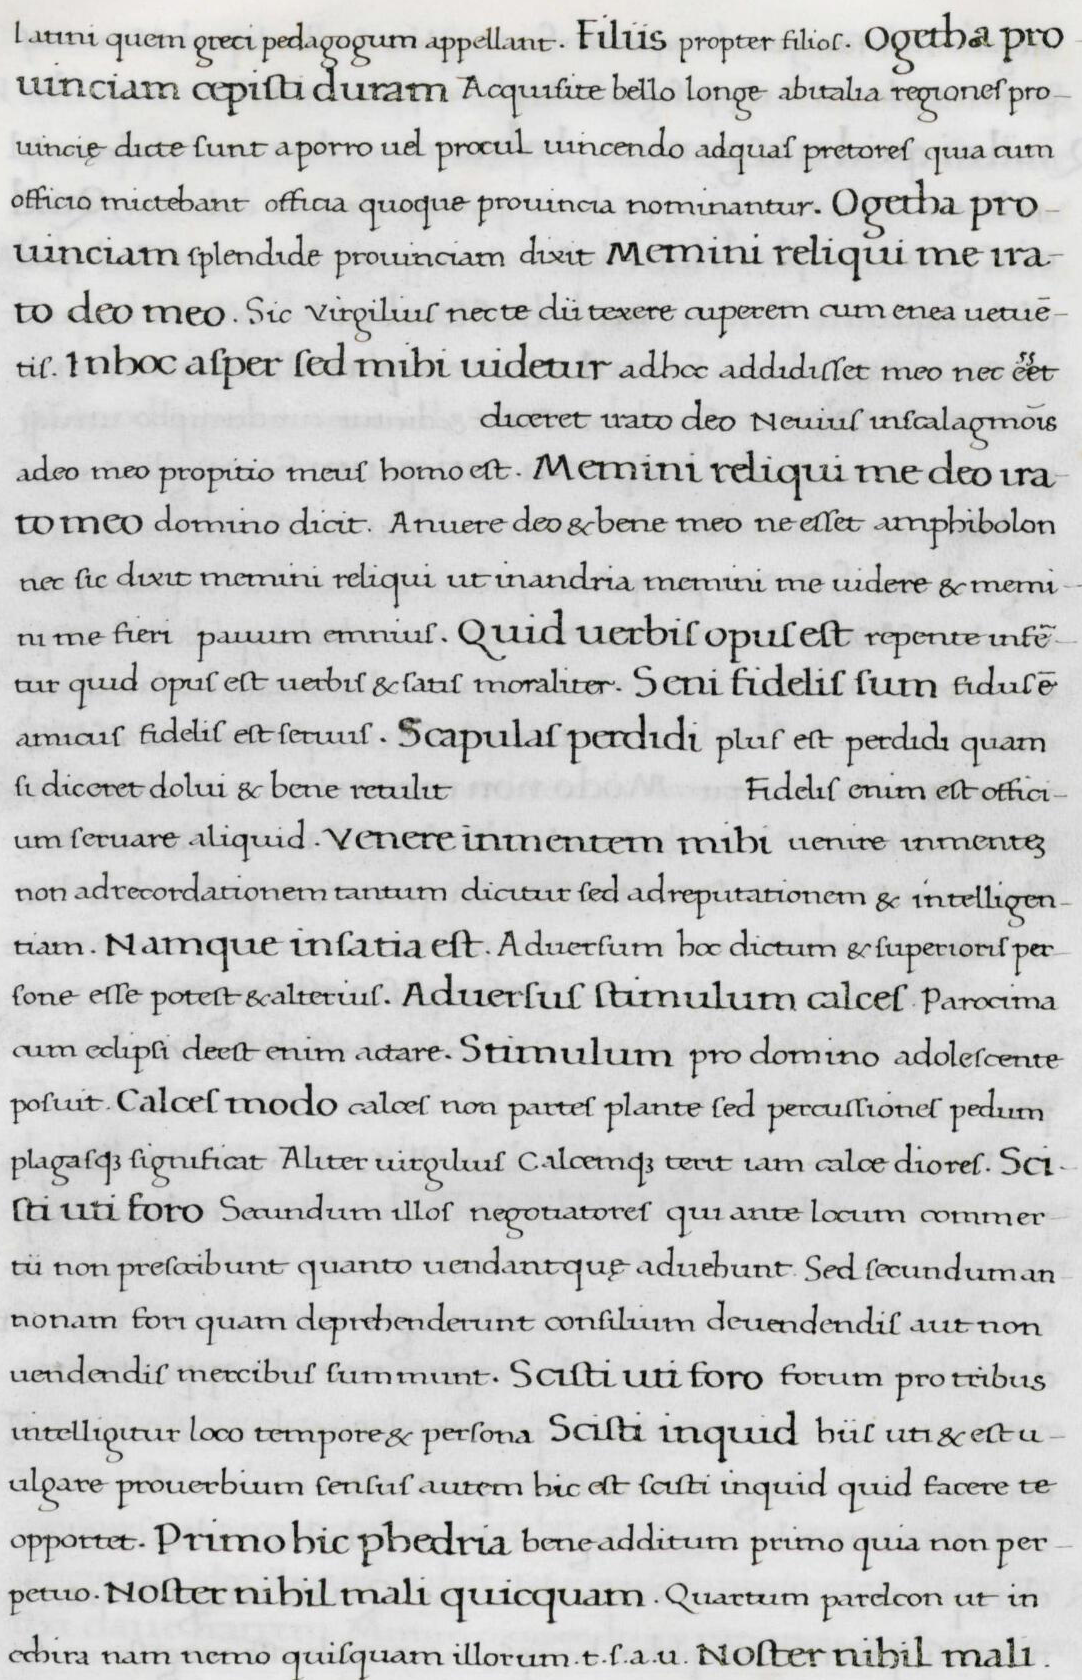 Latini quem greci pedagogum appellant. Filiis propter filios. Ogetha pro
uinciam cepisti duram Acquisite bello longe abitalia regiones pro
uincię dicte sunt aporro uel procul uincendo adquas pretores quia cum
officio mictebant officia quoque prouincia nominantur. Ogetha pro
uinciam splendide prouinciam dixit Memini reliqui me ira
to deo meo. Sic Virgilius nec te dii texere cuperem cum enea uetuē
tis. Inhoc asper sed mihi uidetur adhoc addidisset meo nec eet
diceret irato deo Neuius inscalagmōis
adeo meo propitio meus homo est. Memini reliqui me deo ira
to meo domino dicit. Anuere deo & bene meo ne esset amphibolon
nec sic dixit memini reliqui ut inandria memini me uidere & memi
ni me fieri pauum emnius. Quid uerbis opus est repente infē
tur quid opus est uerbis & satis moraliter. Seni fidelis sum fidus ē
amicus fidelis est seruus. Scapulas perdidi plus est perdidi quam
si diceret dolui & bene retulit Fidelis enim est offici
um seruare aliquid. Venere inmentem mihi uenire inmentēꝫ
non adrecordationem tantum dicitur sed adreputationem & intelligen
tiam. Namque insatia est. Aduersum hoc dictum & superioris per
sone esse potest & alterius. Aduersus stimulum calces. Parocima
cum eclipsi deest enim actare. Stimulum pro domino adolescente
posuit. Calces modo calces non partes plante sed percussiones pedum
plagasqꝫ significat Aliter uirgilius Calcemqꝫ terit iam calce diores. Sci
sti uti foro Secundum illos negotiatores qui ante locum commer
tii non prescribunt quanto uendantquę aduehunt. Sed secundum an
nonam fori quam deprehenderunt consilium deuendendis aut non
uendendis mercibus summunt. Scisti uti foro forum pro tribus
intelligitur loco tempore & persona Scisti inquid hiis uti & est u
ulgare prouerbium sensus autem hic est scisti inquid quid facere te
opportet. Primo hic phedria bene additum primo quia non per
petuo. Noster nihil mali quicquam. Quartum parelcon ut in
echira nam nemo quisquam illorum .t.s.a.u. Noster nihil mali.